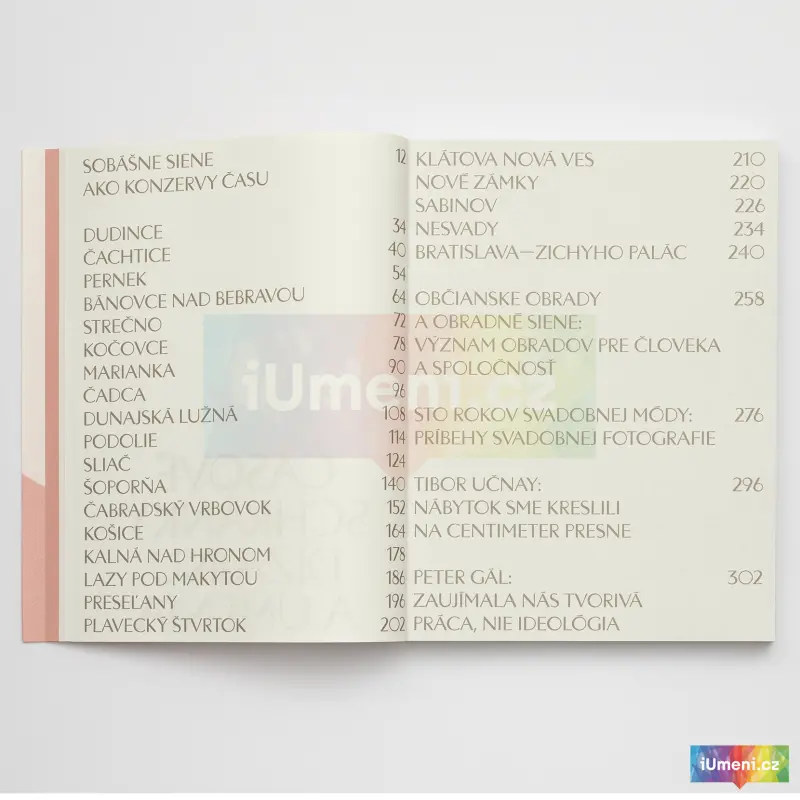 SOBÁŠNE SIENE 12
AKO KONZERVY ČASU
DUDINCE 34
ČACHTICE 40
PERNEK 54
BÁNOVCE NAD BEBRAVOU 64
STREČNO 72
KOČOVCE 78
MARIANKA 90
ČADCA 96
DUNAJSKÁ LUŽNÁ 108
PODOLIE 114
SLIAČ 124
ŠOPORŇA 140
ČABRADSKÝ VRBOVOK 152
KOŠICE 164
KALNÁ NAD HRONOM 178
LAZY POD MAKYTOU 186
PRESEĽANY 196
PLAVECKÝ ŠTVRTOK 202
KLÁTOVA NOVÁ VES 210
NOVÉ ZÁMKY 220
SABINOV 226
NESVADY 234
BRATISLAVA—ZICHYHO PALÁC 240
OBČIANSKE OBRADY 258
A OBRADNÉ SIENE:
VÝZNAM OBRADOV PRE ČLOVEKA
A SPOLOČNOSŤ
STO ROKOV SVADOBNEJ MÓDY: 276
PRÍBEHY SVADOBNEJ FOTOGRAFIE
TIBOR UČNAY: 296
NÁBYTOK SME KRESLILI
NA CENTIMETER PRESNE
PETER GÁL: 302
ZAUJÍMALA NÁS TVORIVÁ
PRÁCA, NIE IDEOLÓGIA
iUmeni.cz
iUmeni.cz